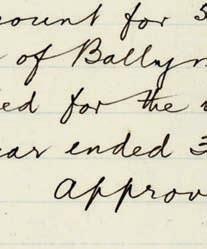 count for 3
of Bally
ed for the
ear ended 3
approv